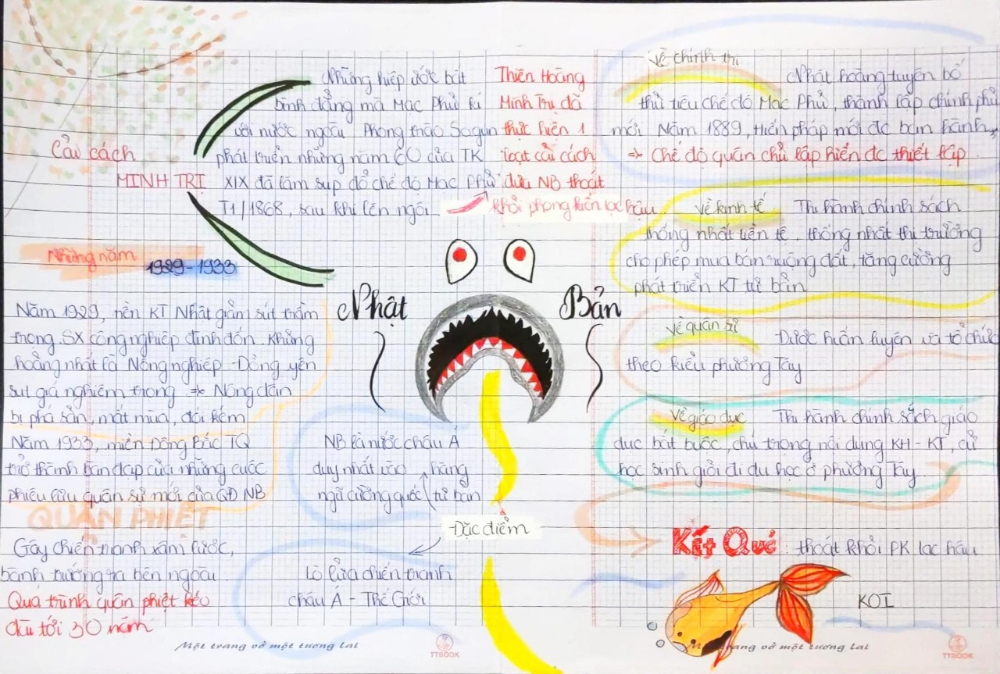 Cải cách
MINH TRỊ
Những hiệp ước bất
bình đẳng mà Mạc Phủ kí
với nước ngoài. Phong trào Sogun
phát triển những năm 60 của TK
XIX đã làm sụp đổ chế độ Mạc Phủ
T1/1868, sau khi lên ngôi
Thiên Hoàng
Minh Trị đã
thực hiện 1
loạt cải cách
đưa NB thoát
khỏi phong kiến lạc hậu
Về chính trị
Nhật hoàng tuyên bố
thủ tiêu chế độ Mạc Phủ, thành lập chính phủ
mới. Năm 1889, Hiến pháp mới đc ban hành
=> Chế độ quân chủ lập hiến đc thiết lập
Về kinh tế Thi hành chính sách
thống nhất tiền tệ, thống nhất thị trường
cho phép mua bán ruộng đất, tăng cường
phát triển KT tư bản
Về quân sự Được huấn luyện và tổ chức
theo kiểu phương Tây
Về giáo dục Thi hành chính sách giáo
dục bắt buộc, chú trọng nội dung KH - KT, cử
học sinh giỏi đi du học ở phương Tây
Kết Quả: thoát khỏi PK lạc hậu
KOI
Nhật Bản
Những năm
1929-1933
Năm 1929, nền KT Nhật giảm sút trầm
trọng. SX công nghiệp đình đốn. Khủng
hoảng nhất là Nông nghiệp. Đồng yên
sụt giá nghiêm trọng => Nông dân
bị phá sản, mất mùa, đói kém
Năm 1933, miền Đông Bắc TQ
trở thành bàn đạp của những cuộc
phiêu lưu quân sự mới của QĐ NB
QUÂN PHIỆT
Gây chiến tranh xâm lược,
bành trướng ra bên ngoài
Quá trình quân phiệt kéo
dài tới 30 năm
NB là nước châu Á
duy nhất vào hàng
ngũ cường quốc tư bản
Đặc điểm
Lò lửa chiến tranh
châu Á - Thế Giới
Một trang vở một tương lai
TTBOOK
Một trang vở một tương lai
TTBOOK